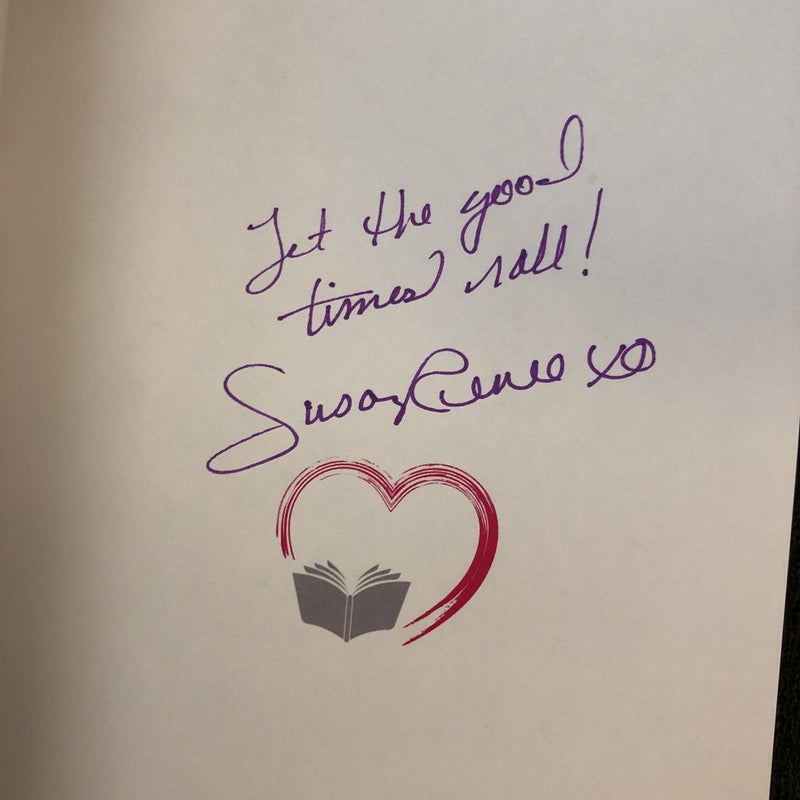 Let the good
times roll!
Susan Renee xo